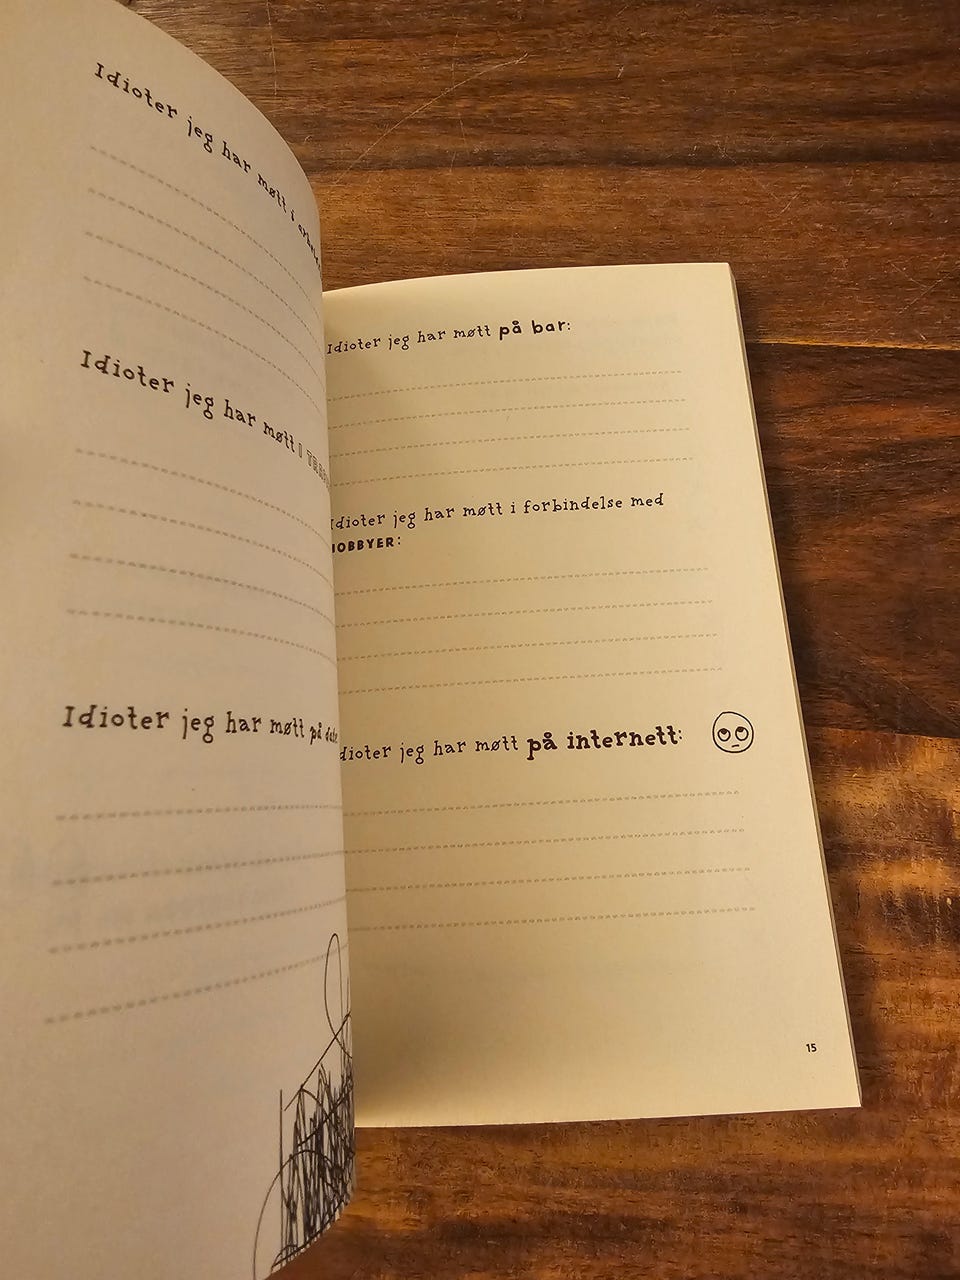 Idioter jeg har møtt i
Idioter jeg har møtt I
Idioter jeg har møtt på date
Idioter jeg har møtt på bar:
Idioter jeg har møtt i forbindelse med
HOBBYER:
Idioter jeg har møtt på internett:
15